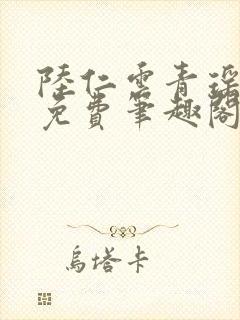 陸仁雲青瑶
免費筆趣閣
烏塔卡